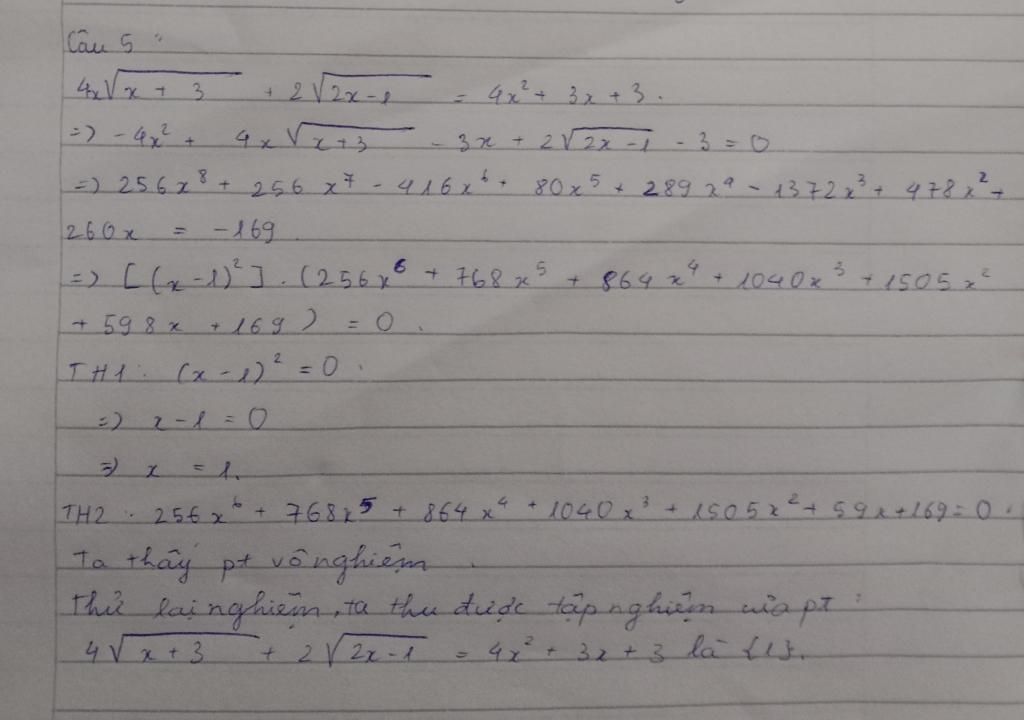 Câu 5 :
4x√(x + 3) + 2√(2x-1) = 4x² + 3x + 3.
=) -4x² + 4x√(x+3) - 3x + 2√(2x-1) - 3 = 0
=) 256x⁸ + 256x⁷ - 416x⁶ + 80x⁵ + 289x⁴ - 1372x³ + 478x² +
260x = -169
=) [(x-1)²] . (256x⁶ + 768x⁵ + 864x⁴ + 1040x³ + 1505x²
+ 598x + 169) = 0.
TH1. (x-1)² = 0.
=) x-1 = 0
=) x = 1.
TH2. 256x⁶ + 768x⁵ + 864x⁴ + 1040x³ + 1505x² + 59x+169=0.
Ta thấy pt vô nghiệm.
Thử lại nghiệm, ta thu được tập nghiệm của pt :
4√(x+3) + 2√(2x-1) = 4x² + 3x + 3 là {1}.